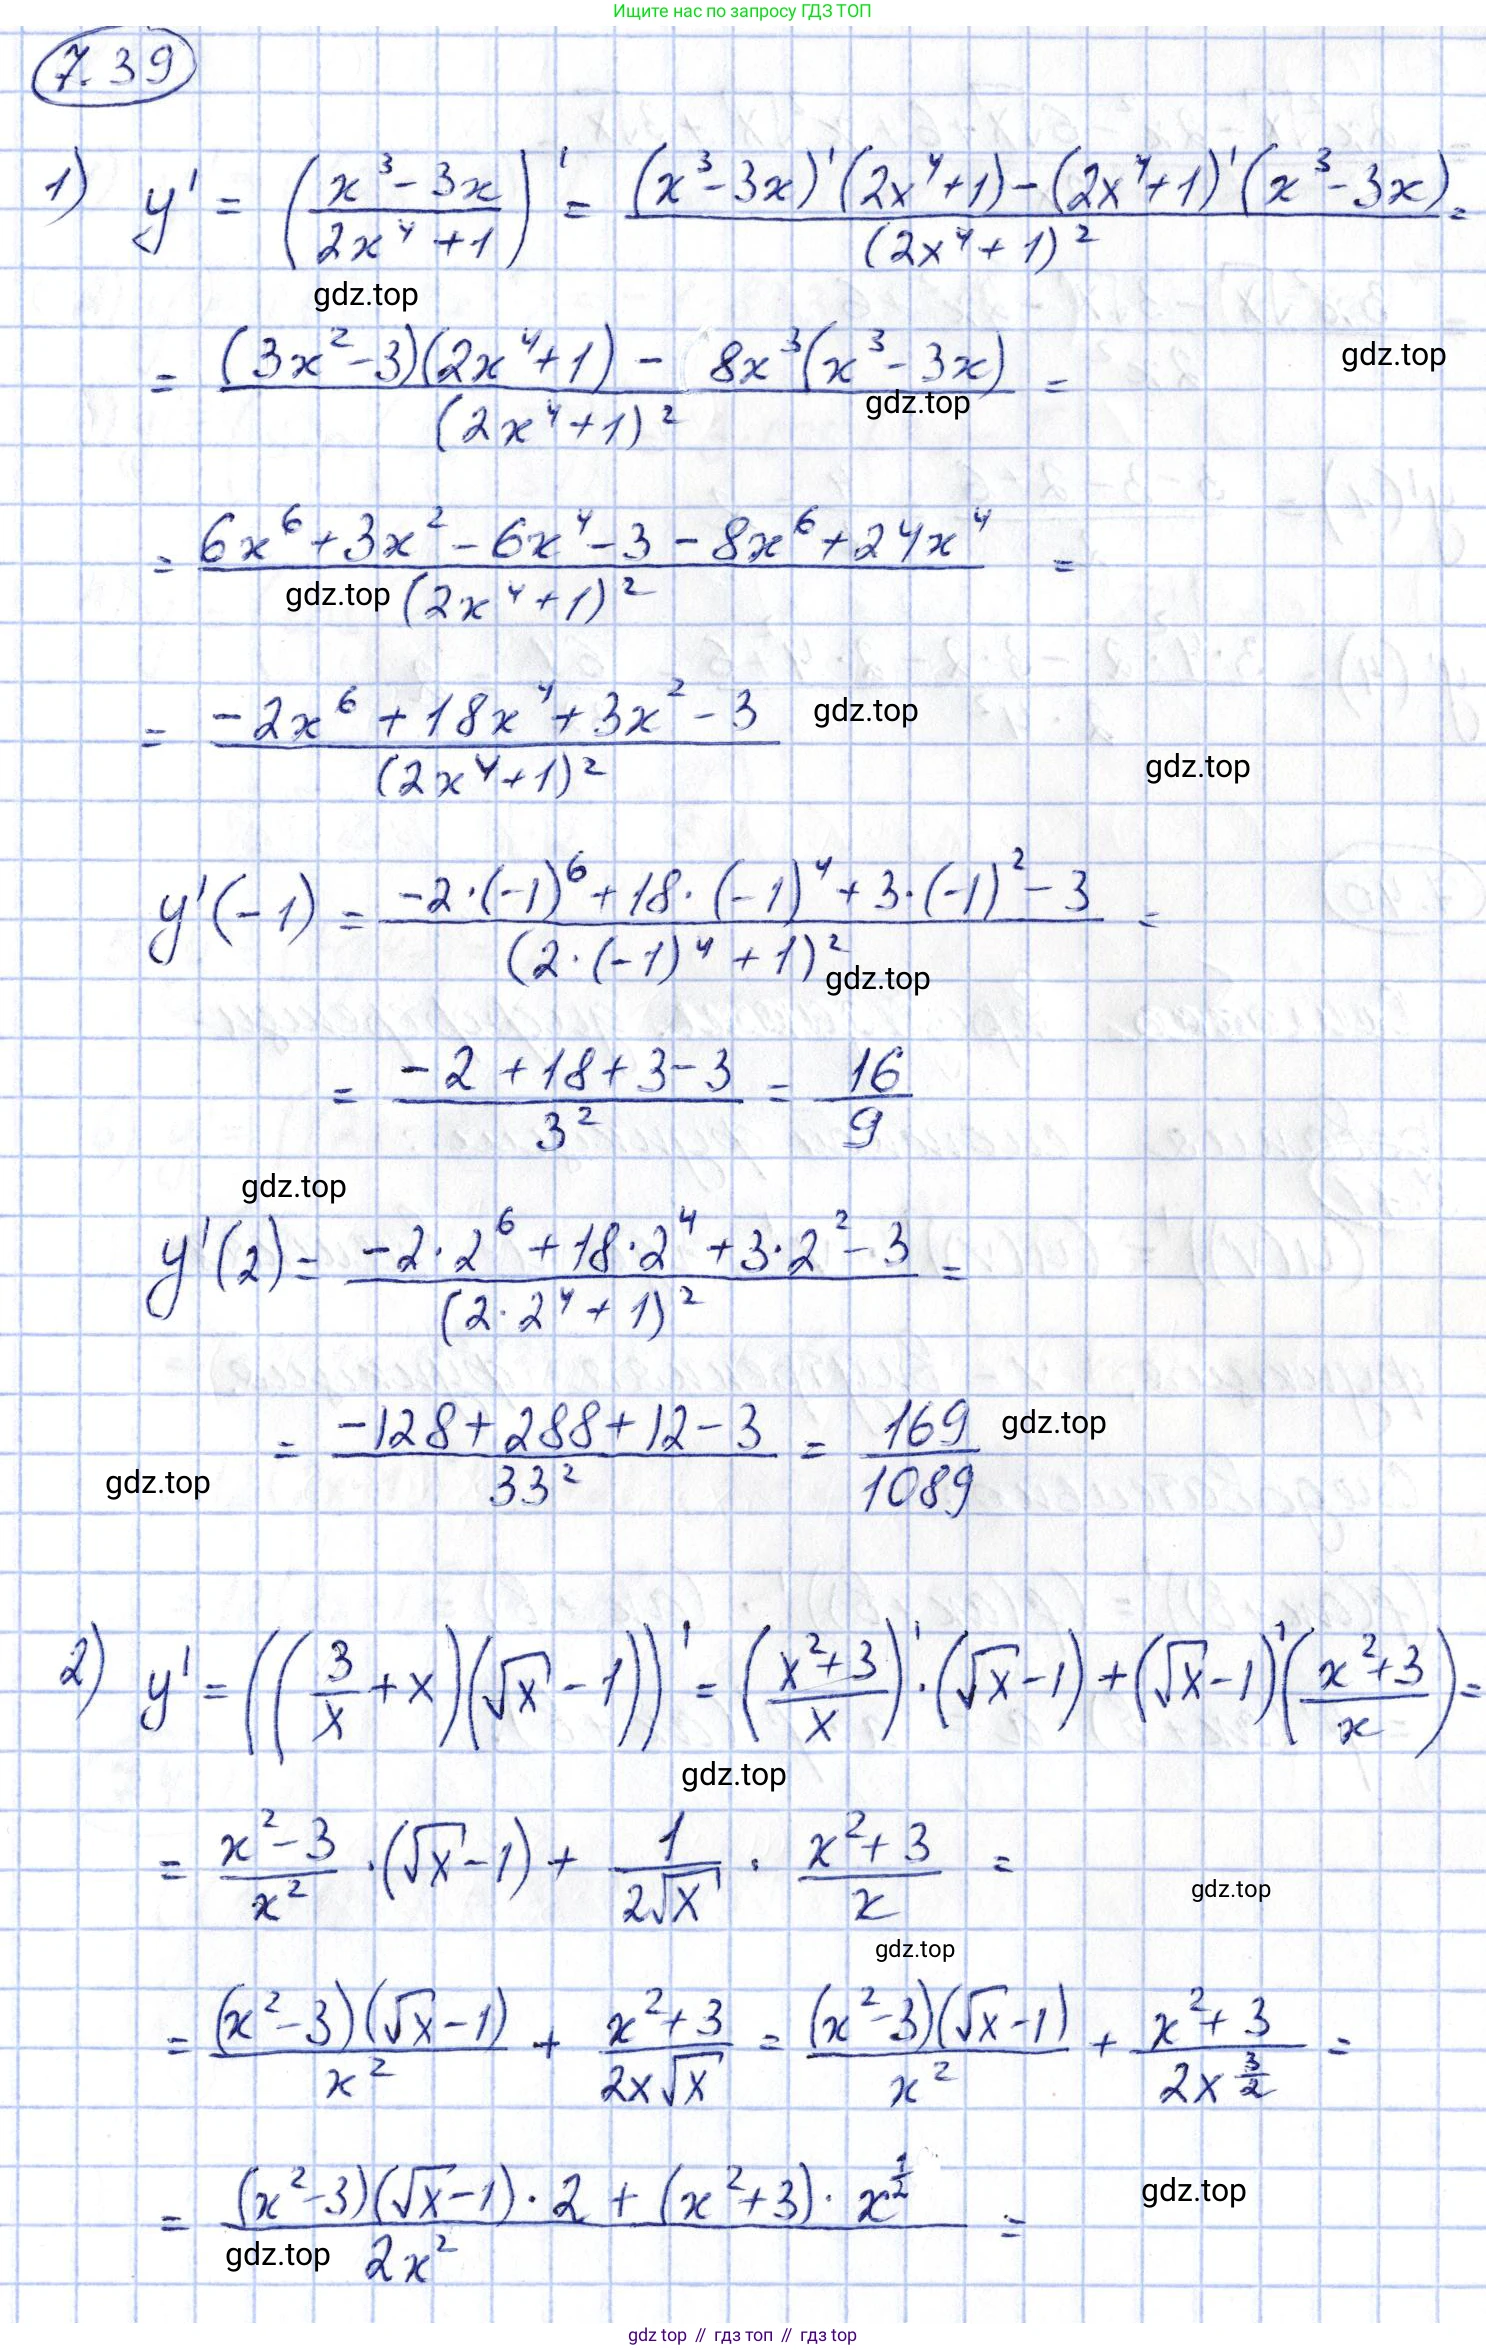 Ищите нас по запросу ГДЗ ТОП
7.39
1) y' = ((x³ - 3x)/(2x⁴ + 1))' = ((x³ - 3x)'(2x⁴ + 1) - (2x⁴ + 1)'(x³ - 3x))/(2x⁴ + 1)² =
gdz.top
= ((3x² - 3)(2x⁴ + 1) - 8x³(x³ - 3x))/(2x⁴ + 1)² =
gdz.top
gdz.top
= (6x⁶ + 3x² - 6x⁴ - 3 - 8x⁶ + 24x⁴)/(2x⁴ + 1)² =
gdz.top
= (-2x⁶ + 18x⁴ + 3x² - 3)/(2x⁴ + 1)²
gdz.top
gdz.top
y'(-1) = (-2·(-1)⁶ + 18·(-1)⁴ + 3·(-1)² - 3)/(2·(-1)⁴ + 1)² =
gdz.top
= (-2 + 18 + 3 - 3)/3² = 16/9
gdz.top
y'(2) = (-2·2⁶ + 18·2⁴ + 3·2² - 3)/(2·2⁴ + 1)² =
= (-128 + 288 + 12 - 3)/33² = 169/1089
gdz.top
gdz.top
2) y' = ((3/x + x)(√x - 1))' = ((x² + 3)/x)'·(√x - 1) + (√x - 1)'((x² + 3)/x) =
gdz.top
= (x² - 3)/x² · (√x - 1) + 1/(2√x) · (x² + 3)/x =
gdz.top
gdz.top
= ((x² - 3)(√x - 1))/x² + (x² + 3)/(2x√x) = ((x² - 3)(√x - 1))/x² + (x² + 3)/(2x^(3/2)) =
= ((x² - 3)(√x - 1)·2 + (x² + 3)·x^(1/2))/(2x²) =
gdz.top
gdz.top
gdz top // гдз топ // гдз top